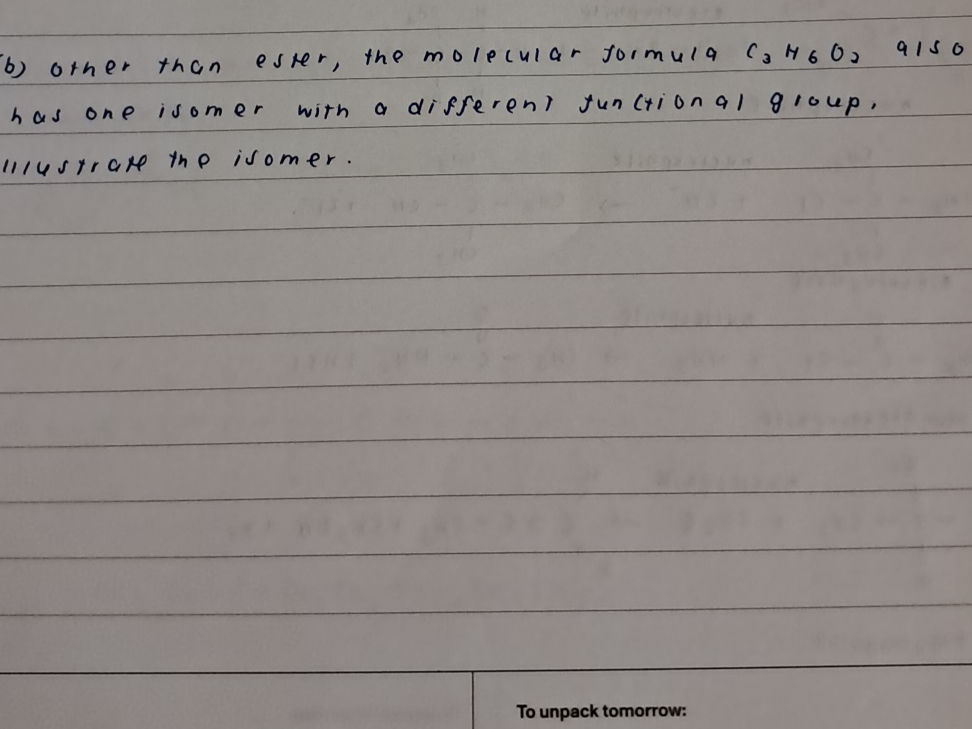 (b) other than ester, the molecular formula C3H6O2 also
has one isomer with a different functional group.
illustrate the isomer.
To unpack tomorrow: